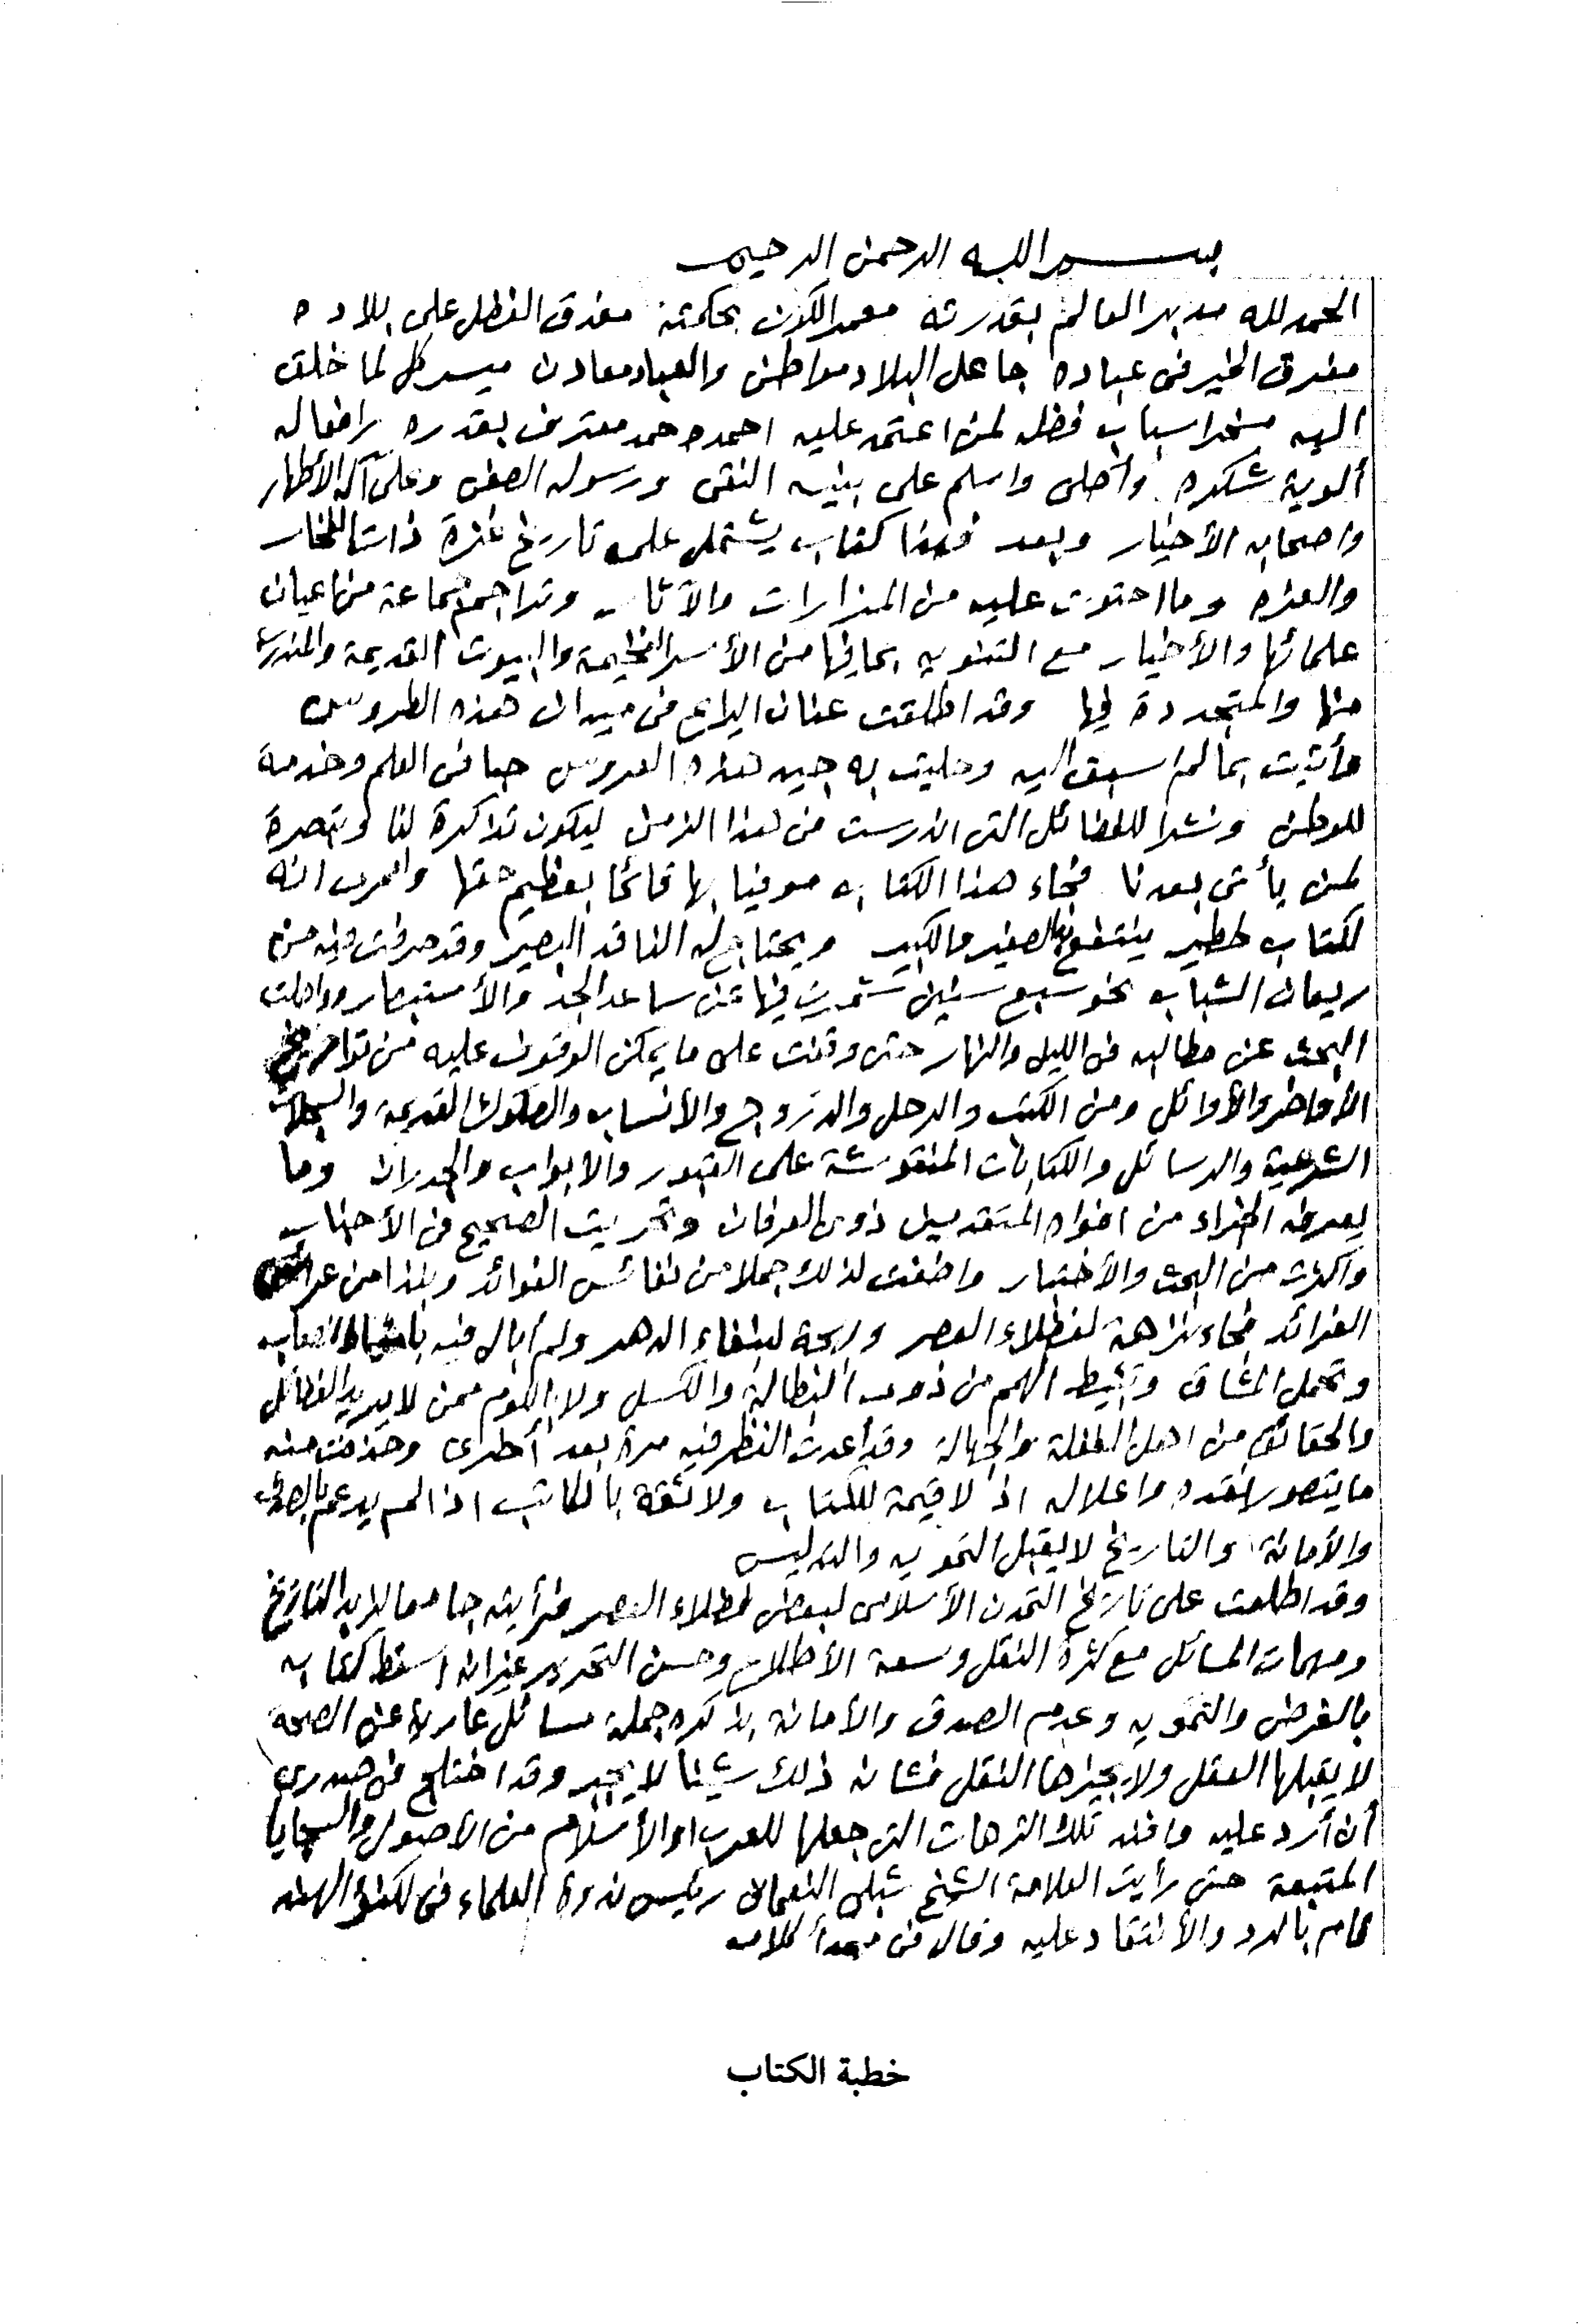 بسم الله الرحمن الرحيم
الحمد لله مدبر العالم بقدرته معمر الكون بحكمته مغدق الفضل على بلاده
مفرق الخير في عباده جاعل البلاد مواطن والعباد معادن ميسر كل لما خلق
اليه مسخر اسباب فضله لمن اعتمد عليه احمده حمد معترف بقدره رافع له
ألوية شكره وأصلى واسلم على نبيه التقى ورسوله الصفى وعلى آله الأطهار
واصحابه الأخيار وبعد فهذا كتاب يشتمل على تاريخ غزة ذات الفخار
والعزه وما احتوت عليه من المزارات والآثار وتراجم جماعة من اعيان
علمائها والأخيار مع التنويه بما فيها من الأسر الفخيمة والبيوت القديمة والمندرسة
منها والمتجددة فيها وقد اطلقت عنان اليراع في ميدان هذه الطروس
وأتيت بما لم اسبق اليه وحليت به جيد هذه العروس حبا في العلم وخدمة
للوطن ونشرا للفضائل التي اندرست في هذا الزمن ليكون تذاكرة لنا وتبصرة
لمن يأتي بعدنا فجاء هذا الكتاب موفيا بها قائما بعظيم حقها ولعمرى انه
لكتاب خطير ينتفع به الصغير والكبير ويحتاج له الناقد البصير وقد صرفت فيه من
ريعان الشباب نحو سبع سنين شمرت فيها عن ساعد الجد والأستبصار وواصلت
البحث عن مطالبه في الليل والنهار حتى وقفت على ما يمكن الوقوف عليه من تواريخ
الأواخر والأوائل ومن الكتب والرحل والدروج والأنساب والصكوك القديمة والسجلات
الشرعية والرسائل والكتابات المنقوشة على القبور والابواب والجدران وما
يعرفه الخبراء من افواه المتقدمين ذوى العرفان وتحريت الصحيح في الأخبار
واكثرت من البحث والأختبار واضفت لذلك جملا من نفائس الفوائد ونبذا من عرائس
الفرائد فجاء نزاهة لفضلاء العصر وبهجة لنبغاء الدهر ولم أبال فيه باقتحام الصعاب
وتحمل المشاق وتثبيط الهمم من ذوى البطالة والكسل ولا باللوم ممن لا يريد الفضائل
والحقائق من اهل الغفلة والجهالة وقد أعدت النظر فيه مرة بعد أخرى وحذفت منه
ما يتصور نقده واعلاله اذ لا قيمة للكتاب ولا ثقة بالكاتب اذا لم يدعم بالصدق
والأمانة والتاريخ لا يقبل التمويه والتدليس
وقد اطلعت على تاريخ التمدن الأسلامى لبعض فضلاء العصر فرأيته جامعا لزبد التاريخ
ومهمات المسائل مع كثرة النقل وسعة الأطلاع وحسن التحرير غير انه اسقط كتابه
بالغرض والتمويه وعدم الصدق والأمانة بذكره جملة مسائل عارية عن الصحة
لا يقبلها العقل ولا يجيزها النقل فشانه ذلك شينا لا يجبر وقد اختلج في صدرى
أن أرد عليه وافند تلك الترهات التي جعلها للعرب او الأسلام من الأصول والسجايا
المتبعة حتى رأيت العلامة الشيخ شبلى النعمانى رئيس ندوة العلماء في لكنؤ الهند
قام بالرد والأنتقاد عليه وقال في مبدأ كلامه
خطبة الكتاب